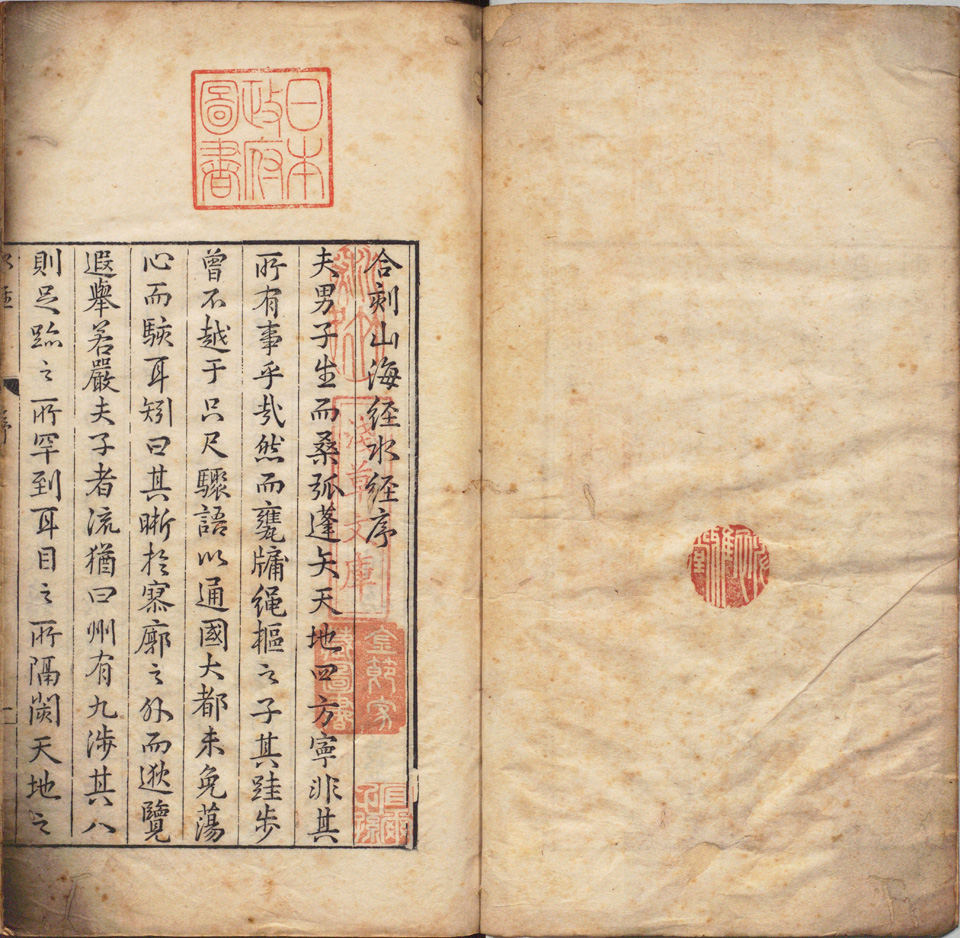 日本
政府
圖書
合刻山海經水經序
夫男子生而桑弧蓬矢天地四方寧非其
所有事乎哉然而甕牖繩樞之子其跬步
曾不越于咫尺驟語以通國大都未免蕩
心而駭耳矧曰其晰於寥廓之外而逖覽
遐舉若嚴夫子者流猶曰州有九涉其八
則足跡之所罕到耳目之所隔閡天地之
淺草文庫
序
一